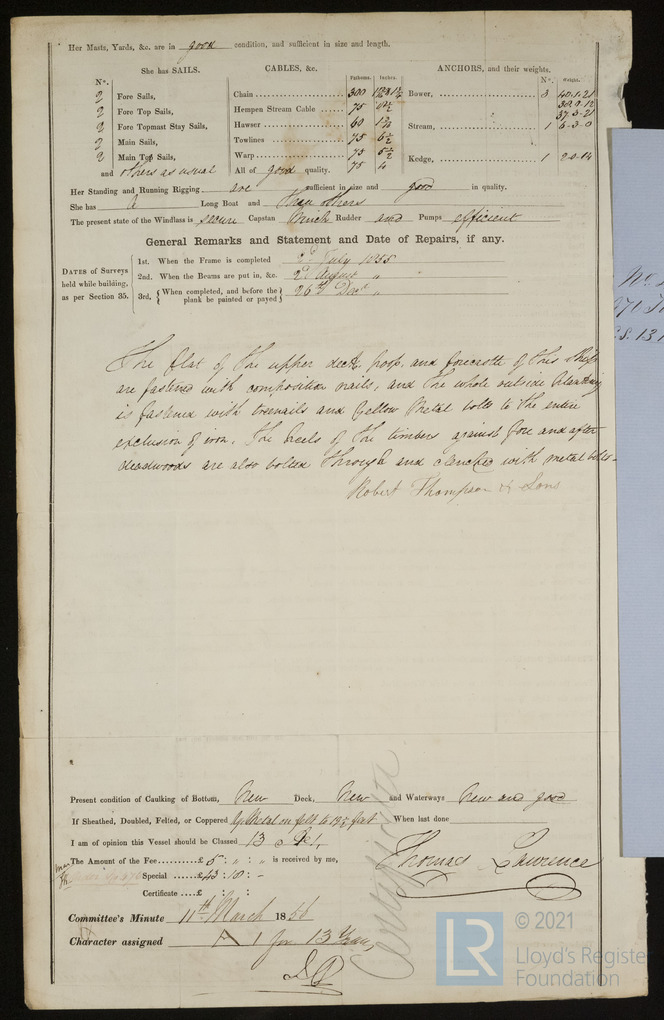 Her Masts, Yards, &c. are in good condition, and sufficient in size and length.
She has SAILS. CABLES, &c. Fathoms. Inches. ANCHORS, and their weights. Nº. Weight.
Nº.
2 Fore Sails, Chain 300 Bower, 3 40.1.21
2 Fore Top Sails, Hempen Stream Cable 75 38.0.12
37.3.21
2 Fore Topmast Stay Sails, Hawser 60 Stream, 1 6-3-0
2 Main Sails, Towlines 75 6½
2 Main Top Sails, Warp 75 5½ Kedge, 1
and others as usual All of good quality. 75 4
Her Standing and Running Rigging are sufficient in size and good in quality.
She has a Long Boat and others
The present state of the Windlass is secure Capstan Rudder and Pumps efficient
General Remarks and Statement and Date of Repairs, if any.
DATES of Surveys held while building, as per Section 35.
1st. When the Frame is completed 2d July 1855
2nd. When the Beams are put in, &c. 2d August "
3rd. { When completed, and before the plank be painted or payed } 26th Decr "
The flat of the upper deck, poop, and forecastle of this Ship
are fastened with composition nails, and the whole outside Planking
is fastened with treenails and Yellow Metal bolts to the entire
exclusion of iron. The heels of the timbers against fore and after
deadwoods are also bolted through and clenched with metal bolts.
Robert Thompson & Sons
Present condition of Caulking of Bottom, New Deck, New and Waterways New and good
If Sheathed, Doubled, Felted, or Coppered Y Metal on felt to 13½ feet When last done
I am of opinion this Vessel should be Classed 13 A 1,
The Amount of the Fee £ 5 : " : " is received by me,
Thomas Lawrence
Special £43 : 10 : -
Certificate £ : :
Certificate
Committee's Minute 11th March 1856
Character assigned A 1 for 13 Years,
© 2021
LR
Lloyd's Register
Foundation